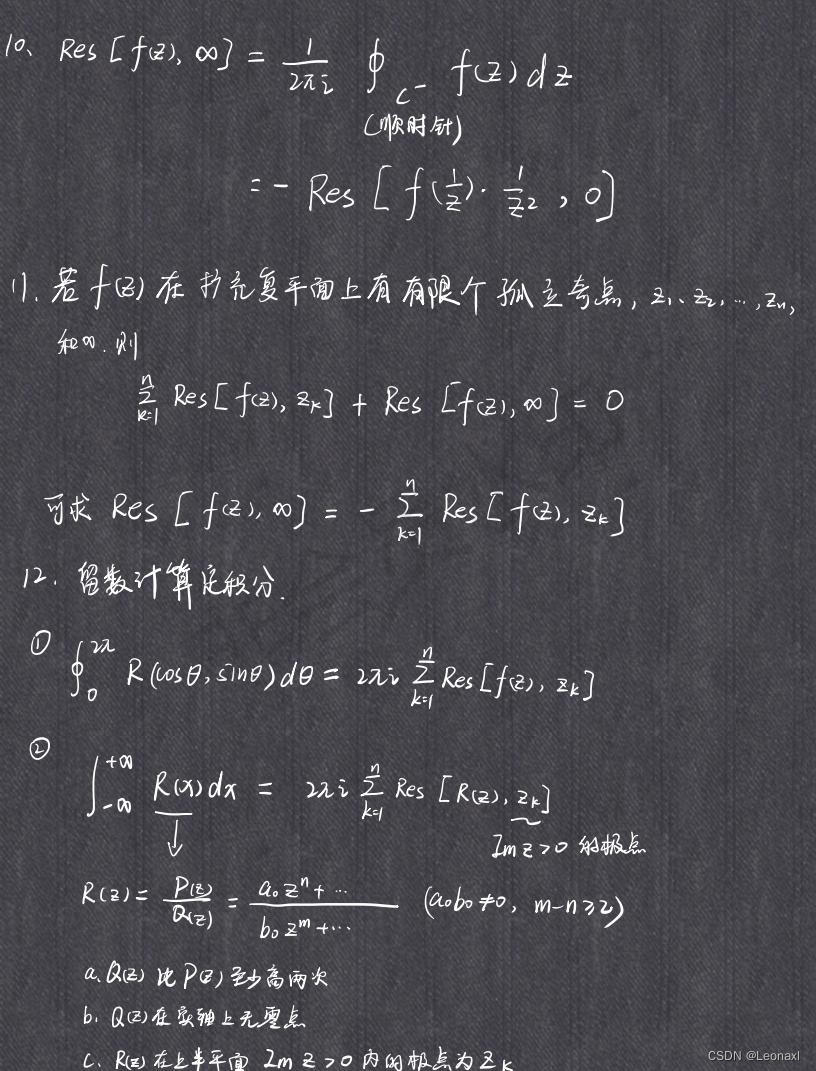 10、 Res [f(z), ∞] = \frac{1}{2πi} ∮_{C⁻} f(z) dz
(顺时针)
= - Res [f(\frac{1}{z})·\frac{1}{z²}, 0]
11. 若 f(z) 在扩充复平面上有有限个孤立奇点, z₁、z₂, …, zₙ,
和∞. 则
\sum_{k=1}^{n} Res[f(z), z_k] + Res [f(z), ∞] = 0
可求 Res [f(z), ∞] = - \sum_{k=1}^{n} Res[f(z), z_k]
12. 留数计算定积分.
① ∮_0^{2π} R(cosθ, sinθ)dθ = 2πi \sum_{k=1}^{n} Res[f(z), z_k]
② ∫_{-∞}^{+∞} R(x)dx = 2πi \sum_{k=1}^{n} Res [R(z), z_k]
Im z > 0 的极点
R(z) = \frac{P(z)}{Q(z)} = \frac{a₀zⁿ+…}{b₀z^m+…} (a₀b₀≠0, m-n≥2)
a. Q(z) 比 P(z) 至少高两次
b. Q(z)在实轴上无零点
c. R(z)在上半平面 Im z > 0 内的极点为 z_k
CSDN @Leonaxl